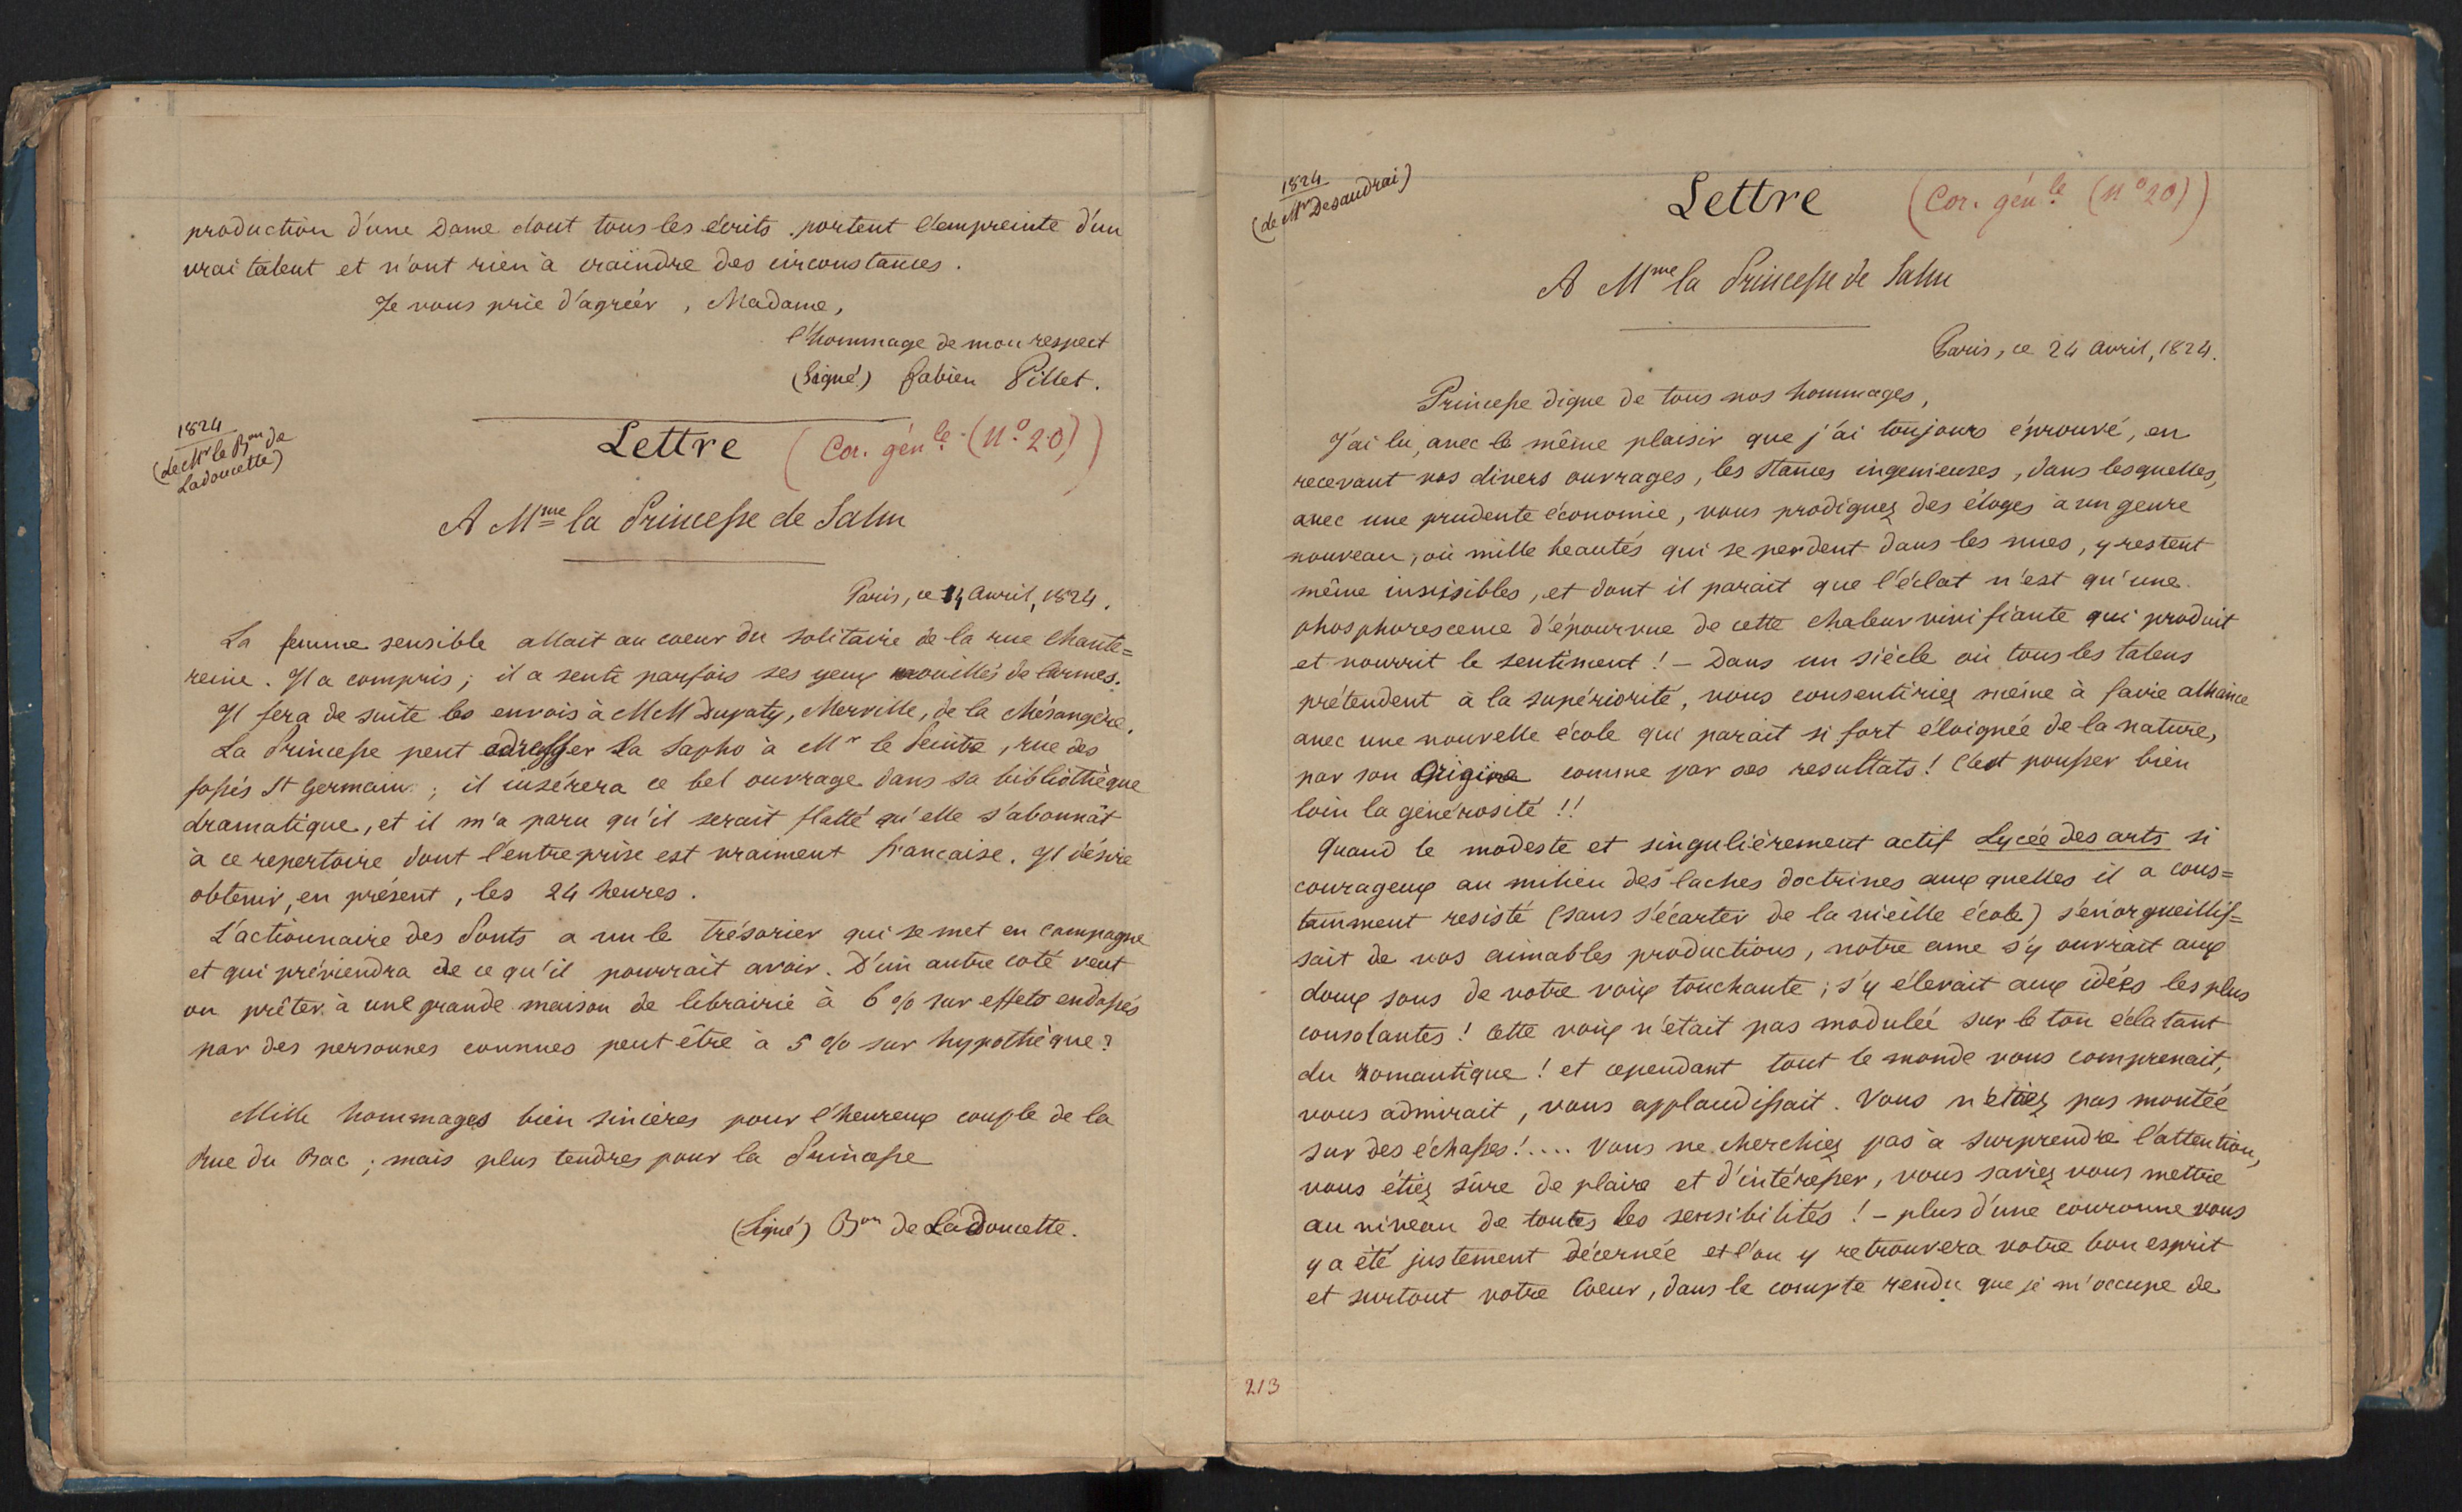 production d'une Dame dont tous les écrits portent l'empreinte d'un
vrai talent et n'ont rien à craindre des circonstances.
Je vous prie d'agréer, Madame,
l'hommage de mon respect
(Signé) Fabien Pillet.
1824
(de Mr le Bon de
Ladoucette)
Lettre (Cor. génle (N° 20))
A Mme la Princesse de Salm
Paris, ce 14 avril, 1824.
La femme sensible allait au coeur du solitaire de la rue Chante=
reine. Il a compris; il a senti parfois ses yeux mouillés de larmes.
Il fera de suite les envois à MM Dupaty, Merville, de la Mésangère.
La Princesse peut adresser sa Sapho à Mr le Peintre, rue des
fossés St Germain; il insérera ce bel ouvrage dans sa bibliothèque
dramatique, et il m'a paru qu'il serait flatté qu'elle s'abonnât
à ce repertoire dont l'entreprise est vraiment française. Il désire
obtenir, en présent, les 24 heures.
L'actionnaire des Ponts a vu le trésorier qui se met en campagne
et qui préviendra de ce qu'il pourrait avoir. D'un autre coté veut
on prêter à une grande maison de librairie à 6 % sur effets endossés
par des personnes connues peut être à 5 % sur hypothèque?
Mille hommages bien sincères pour l'heureux couple de la
Rue du Bac; mais plus tendres pour la Princesse
(Signé) Bon de Ladoucette.
1824
(de Mr Desaudrai)
Lettre (Cor. génle (N° 20))
A Mme la Princesse de Salm
Paris, ce 24 avril, 1824.
Princesse digne de tous nos hommages,
J'ai lu, avec le même plaisir que j'ai toujours éprouvé, en
recevant vos divers ouvrages, les stances ingenieuses, dans lesquelles,
avec une prudente économie, vous prodiguez des éloges à un genre
nouveau, où mille beautés qui se perdent dans les nues, y restent
même invisibles, et dont il parait que l'éclat n'est qu'une
phosphorescence d'épourvue de cette chaleur vivifiante qui produit
et nourrit le sentiment! – Dans un siècle où tous les talens
prétendent à la supériorité, vous consentiriez même à faire alliance
avec une nouvelle école qui parait si fort éloignée de la nature,
par son Origine comme par ses resultats! C'est pousser bien
loin la générosité!!
Quand le modeste et singulièrement actif Lycée des arts si
courageux au milieu des laches doctrines aux quelles il a cons=
tamment resisté (sans s'écarter de la vieille école) s'enorgueillis=
sait de vos aimables productions, notre ame s'y ouvrait aux
doux sons de votre voix touchante; s'y élevait aux idées les plus
consolantes! Cette voix n'était pas modulée sur le ton éclatant
du romantique! et cependant tout le monde vous comprenait,
vous admirait, vous applaudissait. Vous n'étiez pas montée
sur des échasses!.... Vous ne cherchiez pas à surprendre l'attention,
vous étiez sûre de plaire et d'intéresser, vous saviez vous mettre
au niveau de toutes les sensibilités! – plus d'une couronne vous
y a été justement décernée et l'on y retrouvera votre bon esprit
et surtout votre Coeur, dans le compte rendu que je m'occupe de
213